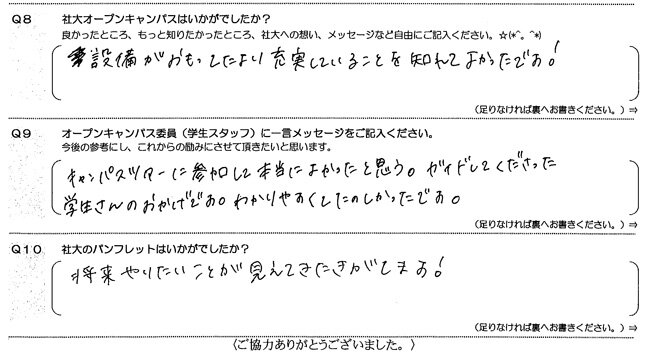 Q8 社大オープンキャンパスはいかがでしたか？
良かったところ、もっと知りたかったところ、社大への想い、メッセージなど自由にご記入ください。☆(*^。^*)
設備がおもってたより充実していることを知れてよかったです！
（足りなければ裏へお書きください。）⇒
Q9 オープンキャンパス委員（学生スタッフ）に一言メッセージをご記入ください。
今後の参考にし、これからの励みにさせて頂きたいと思います。
キャンパスツアーに参加して本当によかったと思う。ガイドしてくださった
学生さんのおかげです。わかりやすくてたのしかったです。
（足りなければ裏へお書きください。）⇒
Q10 社大のパンフレットはいかがでしたか？
将来やりたいことが見えてきたきがしてます！
（足りなければ裏へお書きください。）⇒
〈ご協力ありがとうございました。〉